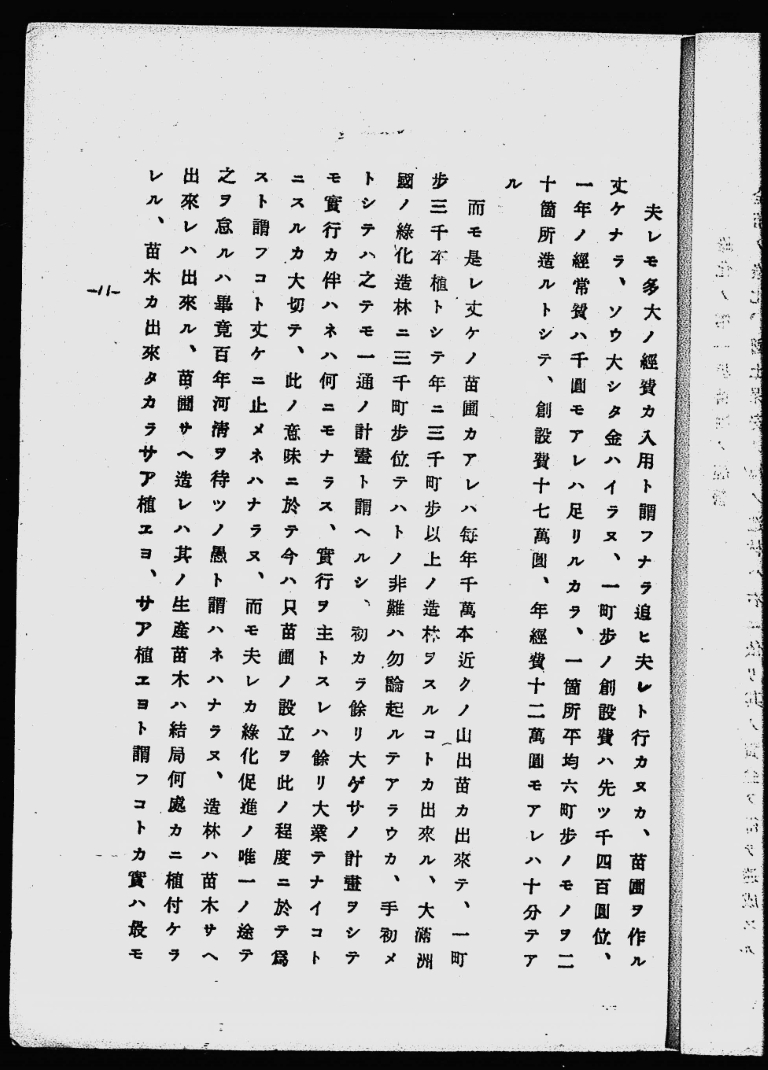 夫レモ多大ノ經費カ入用ト謂フナラ追ヒ夫レト行カヌカ、苗圃ヲ作ル
丈ケナラ、ソウ大シタ金ハイラヌ、一町步ノ創設費ハ先ツ千四百圓位、
一年ノ經常費ハ千圓モアレハ足リルカラ、一箇所平均六町步ノモノヲ二
十箇所造ルトシテ、創設費十七萬圓、年經費十二萬圓モアレハ十分テア
ル
而モ是レ丈ケノ苗圃カアレハ每年千萬本近クノ山出苗カ出來テ、一町
步三千本植トシテ年ニ三千町步以上ノ造林ヲスルコトカ出來ル、大滿洲
國ノ綠化造林ニ三千町步位テハトノ非難ハ勿論起ルテアラウカ、手初メ
トシテハ之テモ一通ノ計畫ト謂ヘルシ、初カラ餘リ大ゲサノ計畫ヲシテ
モ實行カ伴ハネハ何ニモナラス、實行ヲ主トスレハ餘リ大業テナイコト
ニスルカ大切テ、此ノ意味ニ於テ今ハ只苗圃ノ設立ヲ此ノ程度ニ於テ爲
スト謂フコト丈ケニ止メネハナラヌ、而モ夫レカ綠化促進ノ唯一ノ途テ
之ヲ怠ルハ畢竟百年河淸ヲ待ツノ愚ト謂ハネハナラヌ、造林ハ苗木サヘ
出來レハ出來ル、苗圃サヘ造レハ其ノ生產苗木ハ結局何處カニ植付ケラ
レル、苗木カ出來タカラサア植エヨ、サア植エヨト謂フコトカ實ハ最モ
-11-